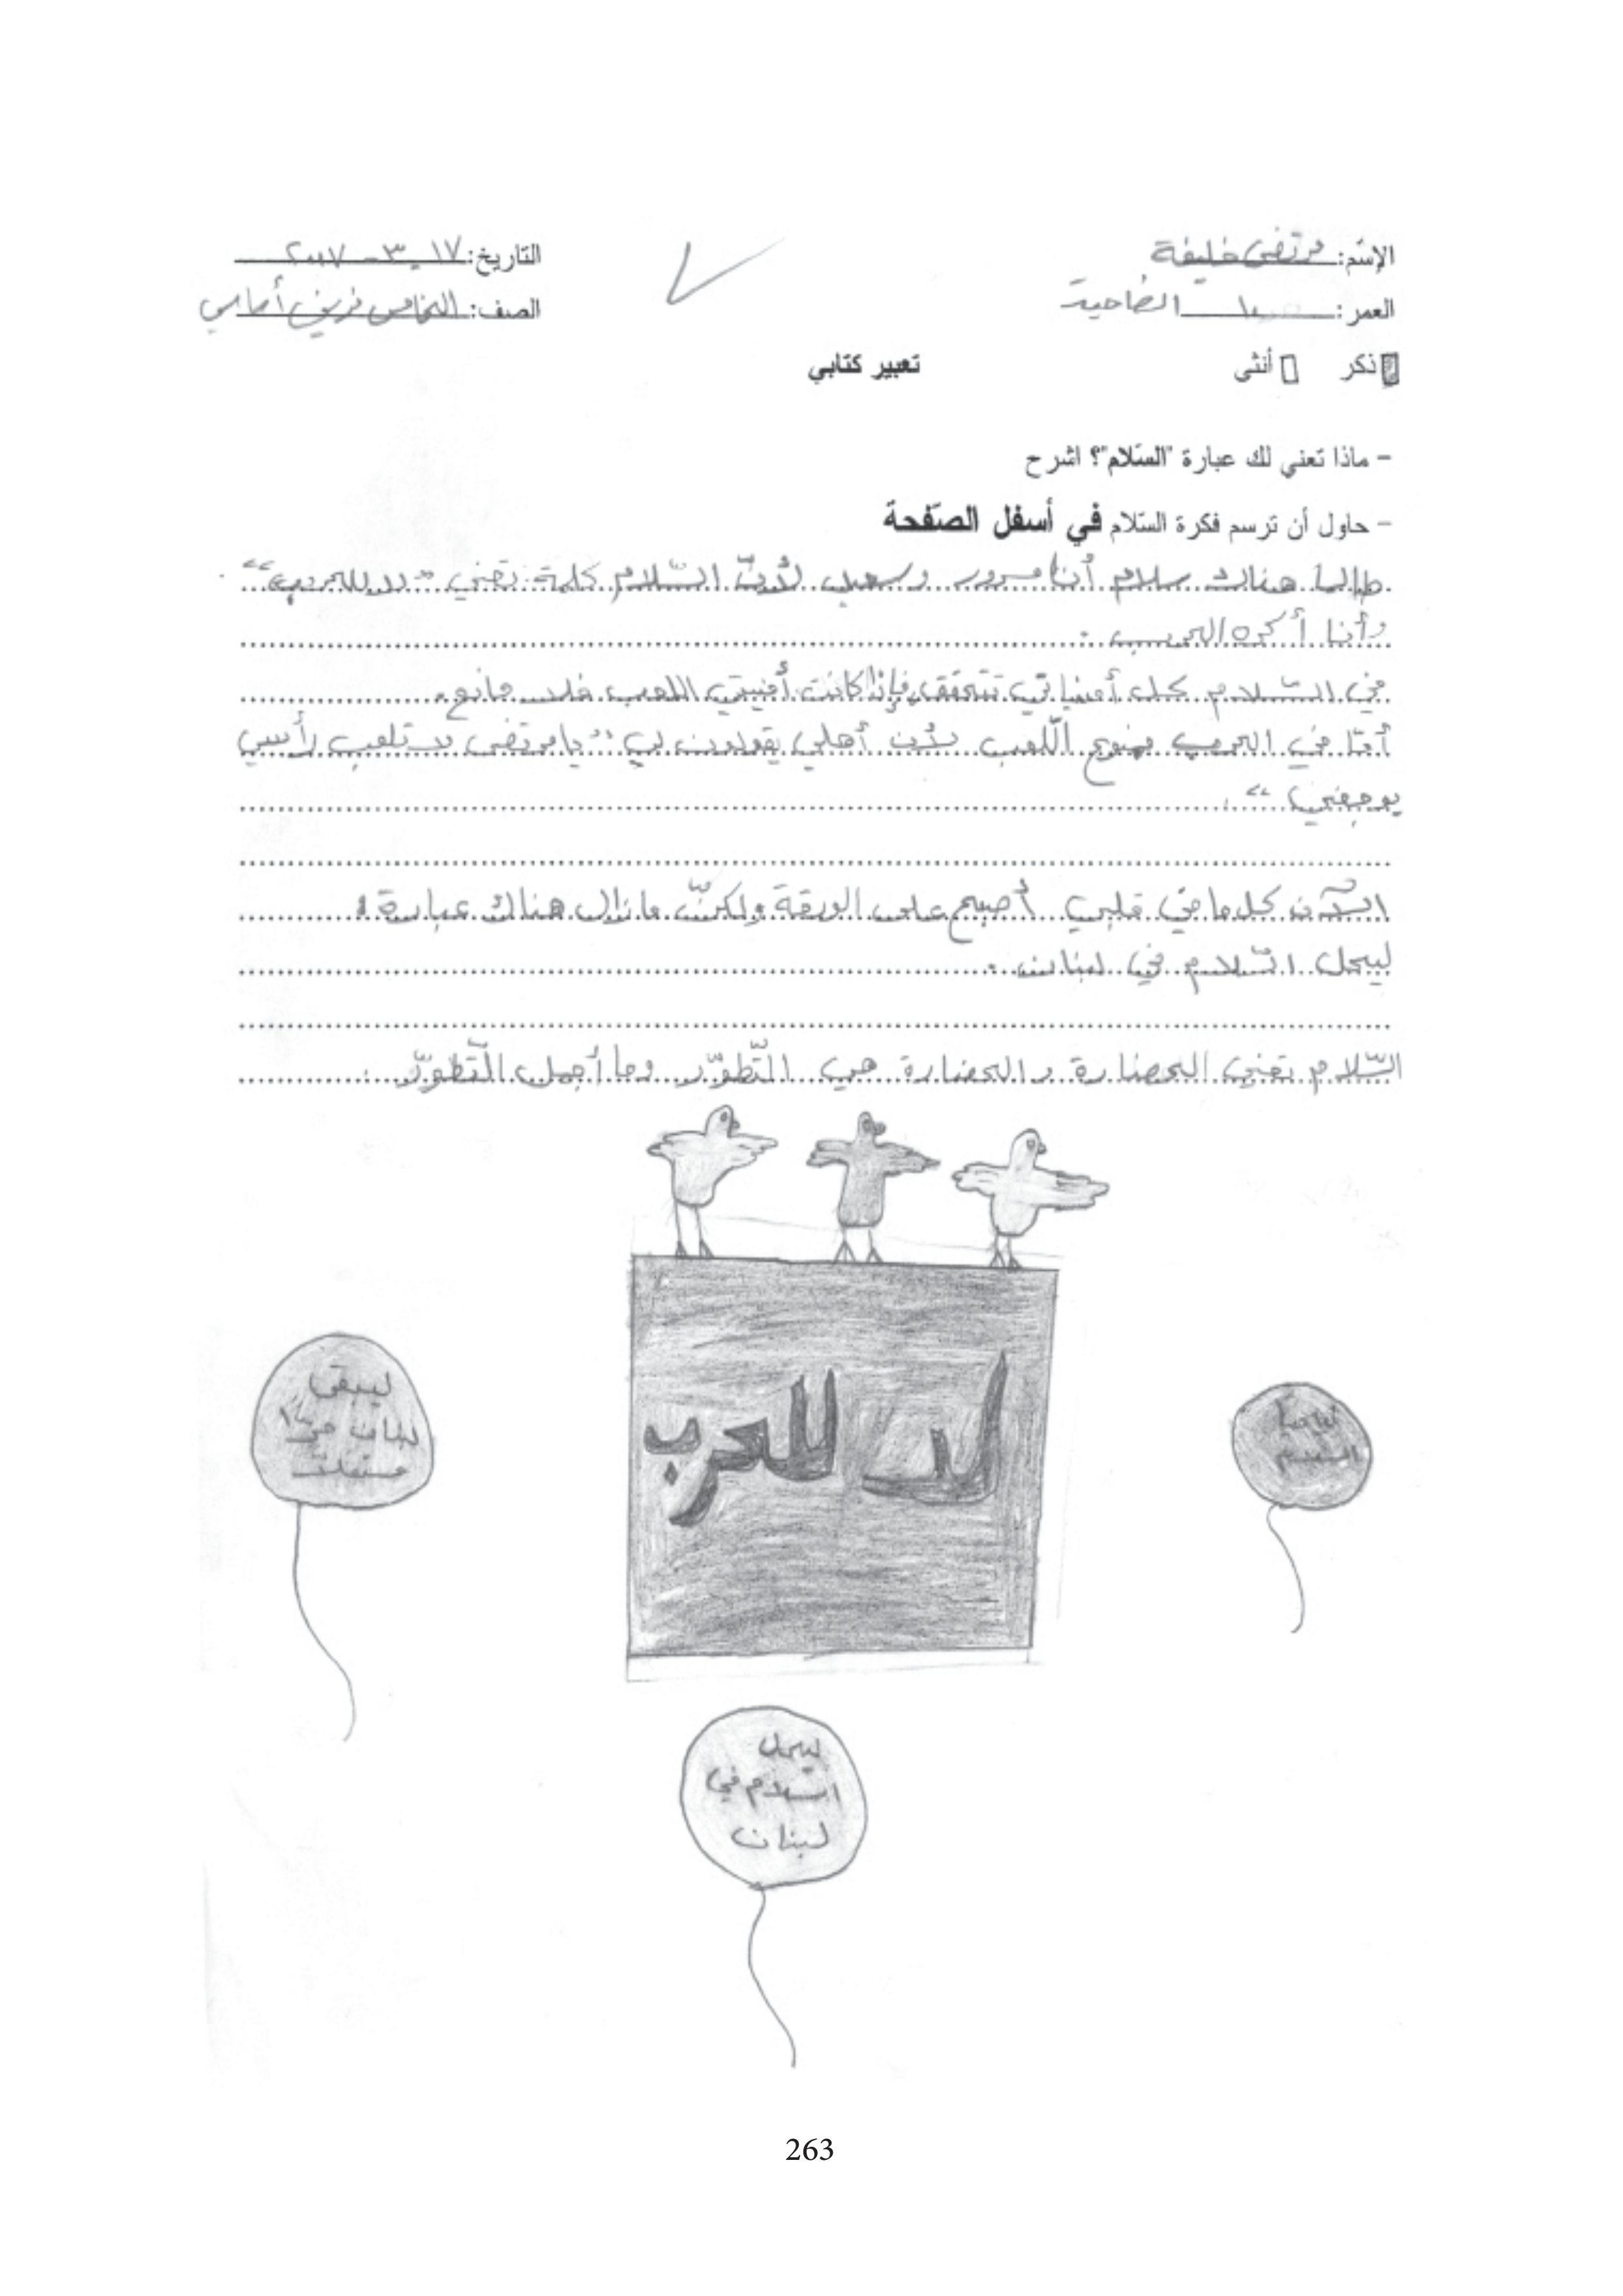 الإسم: مرتضى خليفة
التاريخ: ١٧ - ٣ - ٢٠٠٧
العمر: ١٠ الضاحية
الصف: الخامس أساسي
ذكر أنثى
تعبير كتابي
- ماذا تعني لك عبارة "السّلام"؟ اشرح
- حاول أن ترسم فكرة السّلام في أسفل الصّفحة
طالما هناك سلام أنا مسرور وسعيد لأنّ السّلام كلمة تعني "لا للحرب"
وأنا أكره الحرب.
في السّلام كل أمنياتي تتحقق، فإذا كانت أمنيتي اللعب فلا مانع.
أمّا في الحرب ممنوع اللّعب لأن أهلي يقولون لي "يا مرتضى لا تلعب رأسي
يوجعني".
الآن كل ما في قلبي أصبح على الورقة ولكنّ ما زال هناك عبارة:
ليحل السّلام في لبنان.
السّلام تعني الحضارة والحضارة هي التّطوّر وما أجمل التّطوّر.
لا للحرب
ليبقى
لبنان حرًّا
مستقلاً
السلام
ليحل
السّلام في
لبنان
263